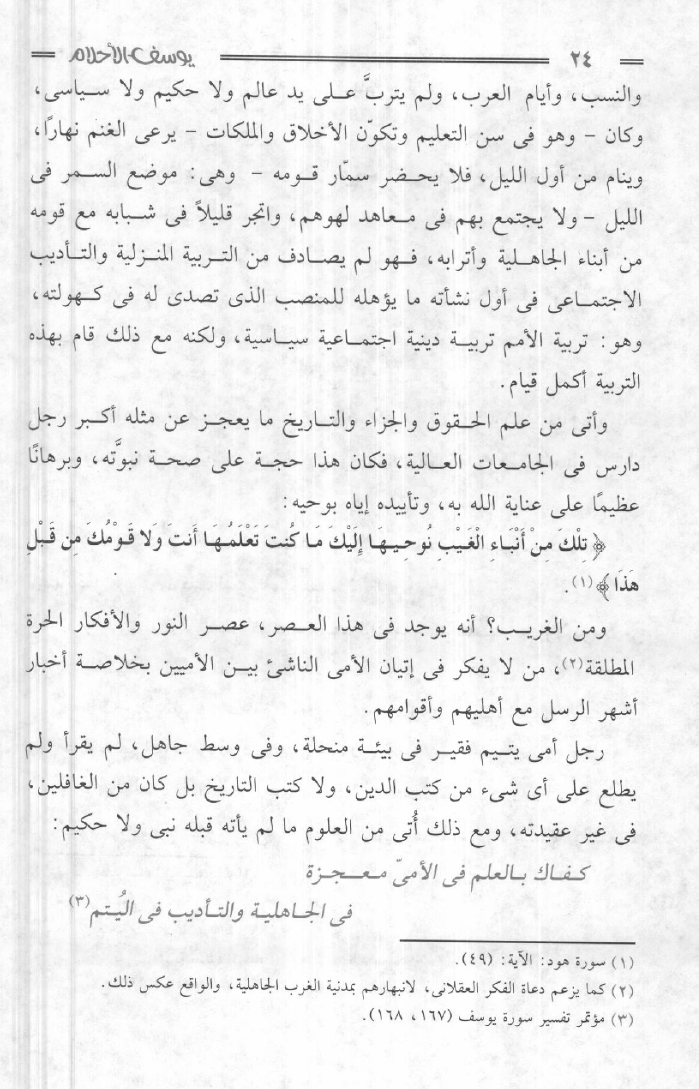 ٢٤ يوسف الأحلام
والنسب، وأيام العرب، ولم يتربَّ على يد عالم ولا حكيم ولا سياسى،
وكان - وهو فى سن التعليم وتكوّن الأخلاق والملكات - يرعى الغنم نهارًا،
وينام من أول الليل، فلا يحضر سمّار قومه - وهى: موضع السمر فى
الليل - ولا يجتمع بهم فى معاهد لهوهم، واتجر قليلاً فى شبابه مع قومه
من أبناء الجاهلية وأترابه، فهو لم يصادف من التربية المنزلية والتأديب
الاجتماعى فى أول نشأته ما يؤهله للمنصب الذى تصدى له فى كهولته،
وهو: تربية الأمم تربية دينية اجتماعية سياسية، ولكنه مع ذلك قام بهذه
التربية أكمل قيام.
وأتى من علم الحقوق والجزاء والتاريخ ما يعجز عن مثله أكبر رجل
دارس فى الجامعات العالية، فكان هذا حجة على صحة نبوَّته، وبرهانًا
عظيمًا على عناية الله به، وتأييده إياه بوحيه:
﴿ تِلْكَ مِنْ أَنْبَاءِ الْغَيْبِ نُوحِيهَا إِلَيْكَ مَا كُنتَ تَعْلَمُهَا أَنتَ وَلا قَوْمُكَ مِن قَبْلِ
هَذَا ﴾(١).
ومن الغريب؟ أنه يوجد فى هذا العصر، عصر النور والأفكار الحرة
المطلقة(٢)، من لا يفكر فى إتيان الأمى الناشئ بين الأميين بخلاصة أخبار
أشهر الرسل مع أهليهم وأقوامهم.
رجل أمى يتيم فقير فى بيئة منحلة، وفى وسط جاهل، لم يقرأ ولم
يطلع على أى شىء من كتب الدين، ولا كتب التاريخ بل كان من الغافلين،
فى غير عقيدته، ومع ذلك أُتى من العلوم ما لم يأته قبله نبى ولا حكيم:
كفاك بالعلم فى الأمىّ معجزة
فى الجاهلية والتأديب فى اليُتم(٣)
(١) سورة هود: الآية: (٤٩).
(٢) كما يزعم دعاة الفكر العقلانى، لانبهارهم بمدنية الغرب الجاهلية، والواقع عكس ذلك.
(٣) مؤتمر تفسير سورة يوسف (١٦٧، ١٦٨).